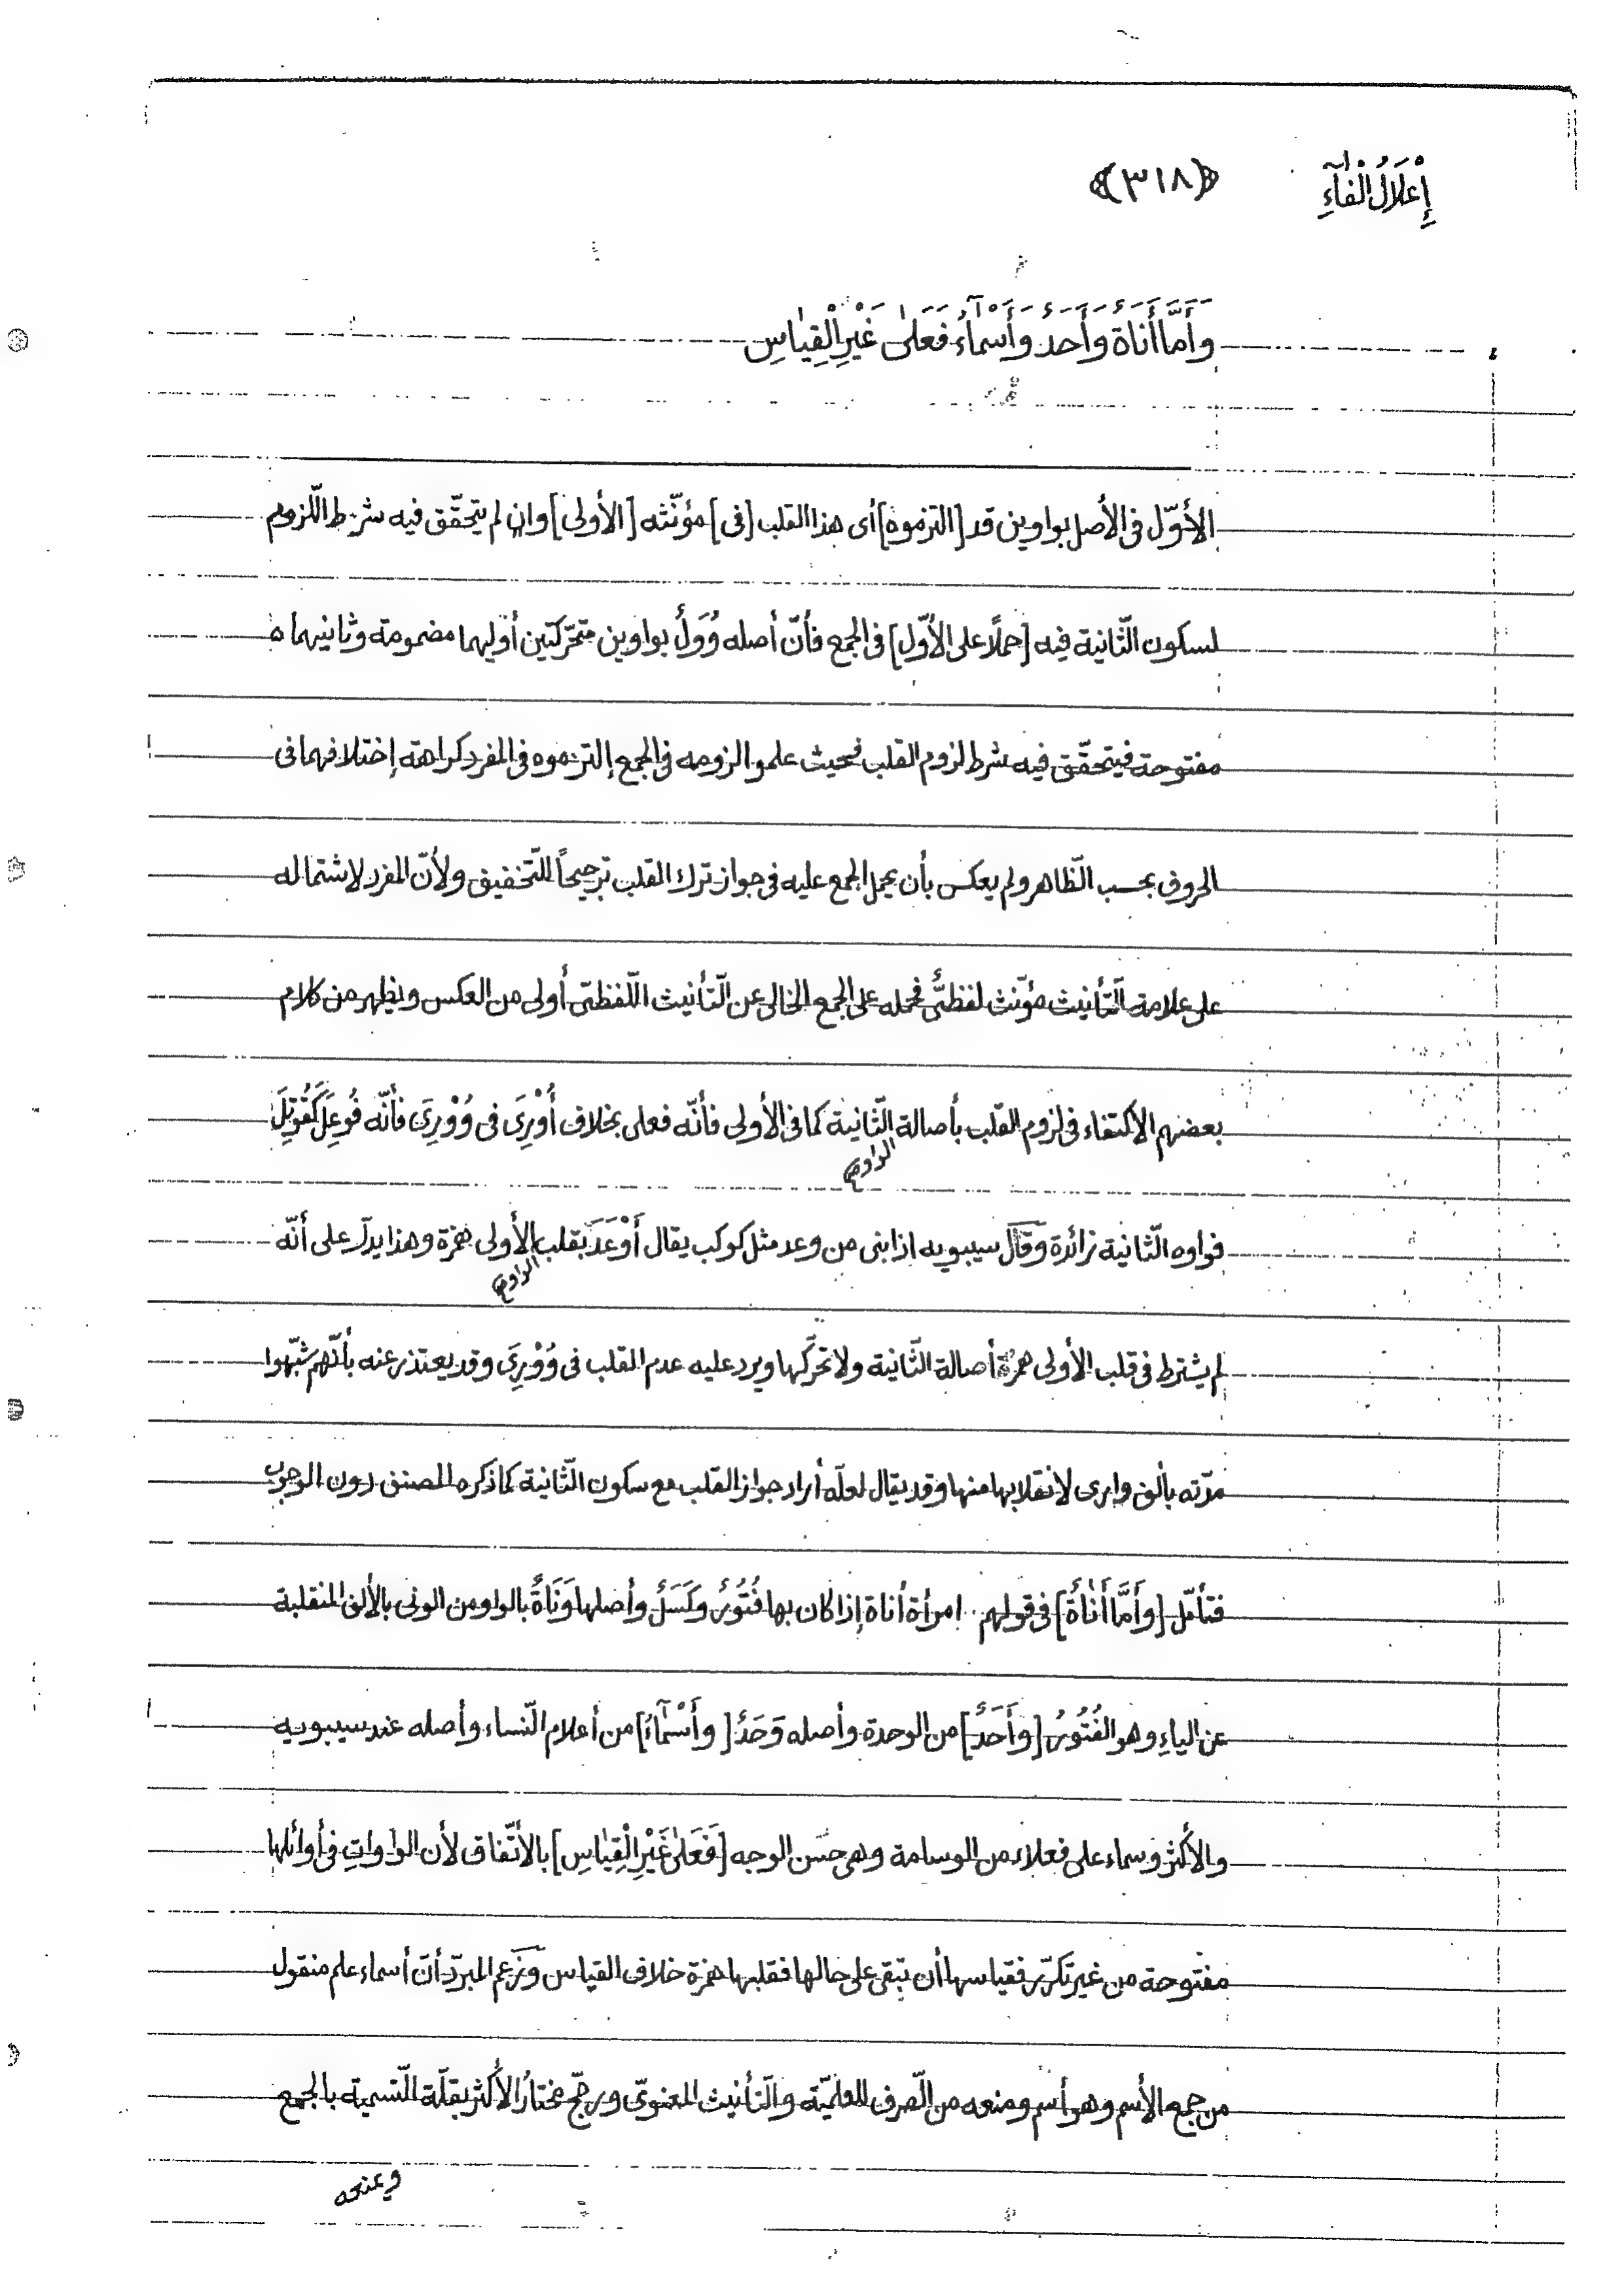 إِعْلَالُ الْفَآءِ
﴿٣١٨﴾
وَأَمَّا أَنَاةٌ وَأَحَدٌ وَأَسْمَآءُ فَعَلىٰ غَيْرِ الْقِيٰاسِ
الأوّل فى الأصل بواوين قد [التزموه] أى هذا القلب [فى] مؤنّثه [الأولى] وإن لم يتحقّق فيه شرط اللّزوم
لسكون الثّانية فيه [حملًا على الأوّل] فى الجمع فأنّ أصله وُوَلٌ بواوين متحرّكتين أوليهما مضمومة وثانيهما
مفتوحة فيتحقّق فيه شرط لزوم القلب فحيث علموا لزومه فى الجمع إلتزموه فى المفرد كراهة إختلافهما فى
الحروف بحسب الظّاهر ولم يعكس بأن يحمل الجمع عليه فى جواز ترك القلب ترجيحاً للتّخفيف ولأنّ المفرد لاشتماله
على علامة التّأنيث مؤنّث لفظىٌّ فحمله على الجمع الخالى عن التّأنيث اللّفظىّ أولى من العكس ويظهر من كلام
بعضهم الاكتفاء فى لزوم القلب بأصالة الثّانية كما فى الأولى فأنّه فعلى بخلاف أُوْرِىَ فى وُوْرِىَ فأنّه فُوعِلَ كَقُوتِلَ
الواو
فواوه الثّانية زائدة وقال سيبويه اذا بنى من وعد مثل كوكب يقال أَوْعَدَ بقلب الأولى همزة وهذا يدلّ على أنّه
الواو
لم يشترط فى قلب الأولى همزة أصالة الثّانية ولا تحرّكها ويرد عليه عدم القلب فى وُوْرِىَ وقد يعتذر عنه بأنّهم شبّهوا
مدّته بألف وارى لانقلابها منها وقد يقال لعلّه أراد جواز القلب مع سكون الثّانية كما ذكره المصنف دون الوجوب
فتأمّل [وأَمَّا أَنٰاةٌ] فى قولهم امرأة أناة إذا كان بها فُتُورٌ وكَسَلٌ وأصلها وَنَاةٌ بالواو من الونى بالألف المنقلبة
عن الياءِ وهو الفُتُورُ [وأَحَدٌ] من الوحدة وأصله وَحَدٌ [وأَسْمٰآءُ] من أعلام النّساء وأصله عند سيبويه
والأكثر وسماء على فعلاء من الوسامة وهى حسن الوجه [فَعَلىٰ غَيْرِ الْقِيٰاسِ] بالأتّفاق لأن الواواتِ فى أوائلها
مفتوحة من غير تكرّر فقياسها أن تبقى على حالها فقلبها همزة خلاف القياس وزعم المبرّد أنّ أسماء علم منقول
من جمع الأسم وهو أسم ومنعه من الصّرف للعلميّة والتّأنيث المعنوىّ ورجّح مختارُ الأكثر بقلّة التّسمية بالجمع